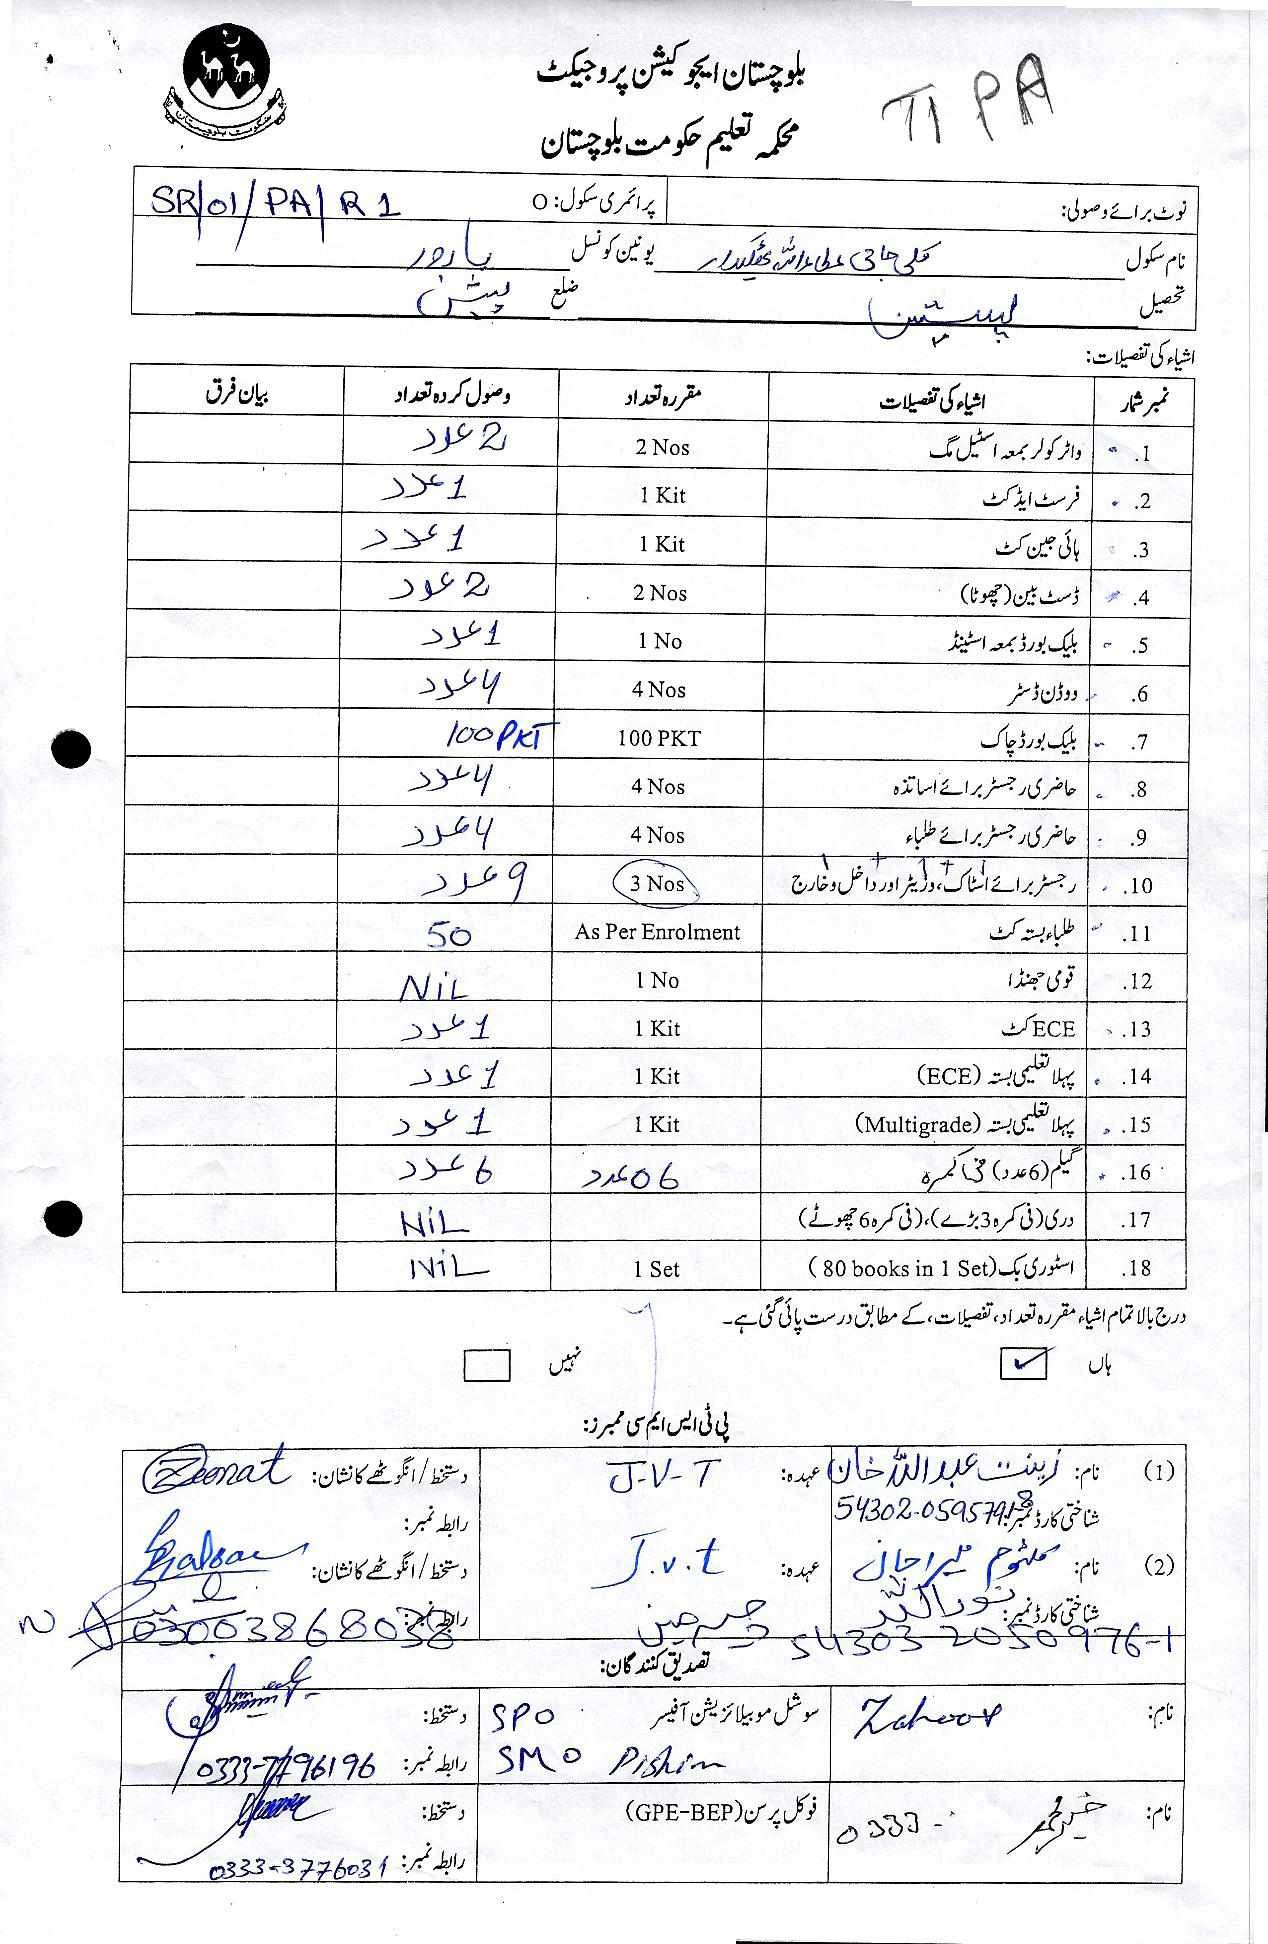 بلوچستان ایجوکیشن پروجیکٹ
TI PA
محکمہ تعلیم حکومت بلوچستان
نوٹ برائے وصولی: پرائمری سکول: O SR/01/PA/R1
نام سکول کلی حاجی عطاءاللہ یونین کونسل یارو
تحصیل پشین ضلع پشین
اشیاء کی تفصیلات:
نمبر شمار اشیاء کی تفصیلات مقررہ تعداد وصول کردہ تعداد بیان فرق
.1 واٹر کولر بمعہ اسٹیل مگ 2 Nos 2 عدد
.2 فرسٹ ایڈ کٹ 1 Kit 1 عدد
.3 ہائی جین کٹ 1 Kit 1 عدد
.4 ڈسٹ بین (چھوٹا) 2 Nos 2 عدد
.5 بلیک بورڈ بمعہ اسٹینڈ 1 No 1 عدد
.6 ووڈن ڈسٹر 4 Nos 4 عدد
.7 بلیک بورڈ چاک 100 PKT 100 PKT
.8 حاضری رجسٹر برائے اساتذہ 4 Nos 4 عدد
.9 حاضری رجسٹر برائے طلباء 4 Nos 4 عدد
.10 رجسٹر برائے اسٹاک، وزیٹر اور داخل و خارج 3 Nos 9 عدد
.11 طلباء بستہ کٹ As Per Enrolment 50
.12 قومی جھنڈا 1 No NiL
.13 ECE کٹ 1 Kit 1 عدد
.14 پہلا تعلیمی بستہ (ECE) 1 Kit 1 عدد
.15 پہلا تعلیمی بستہ (Multigrade) 1 Kit 1 عدد
.16 گیلم (6 عدد) فی کمرہ 06 عدد 6 عدد
.17 دری (فی کمرہ 3 بڑے)، (فی کمرہ 6 چھوٹے) NiL
.18 اسٹوری بک (80 books in 1 Set) 1 Set NiL
درج بالا تمام اشیاء مقررہ تعداد، تفصیلات، کے مطابق درست پائی گئی ہے۔
ہاں ✓ نہیں
پی ٹی ایس ایم سی ممبرز:
(1) نام: زینت عبداللہ خان عہدہ: J-V-T دستخط/انگوٹھے کا نشان: Zeenat
شناختی کارڈ نمبر: رابطہ نمبر:
(2) نام: کلثوم میرا جان عہدہ: J.v.t دستخط/انگوٹھے کا نشان:
شناختی کارڈ نمبر: نوراللہ چیرمین رابطہ نمبر: 03003868038
54303 2050976-1
تصدیق کنندگان:
نام: Zahoor سوشل موبیلائزیشن آفیسر SPO دستخط:
SMO Pishin رابطہ نمبر: 0333-7796196
نام: خیر محمد 0333- فوکل پرسن (GPE-BEP) دستخط:
رابطہ نمبر: 0333-3776031